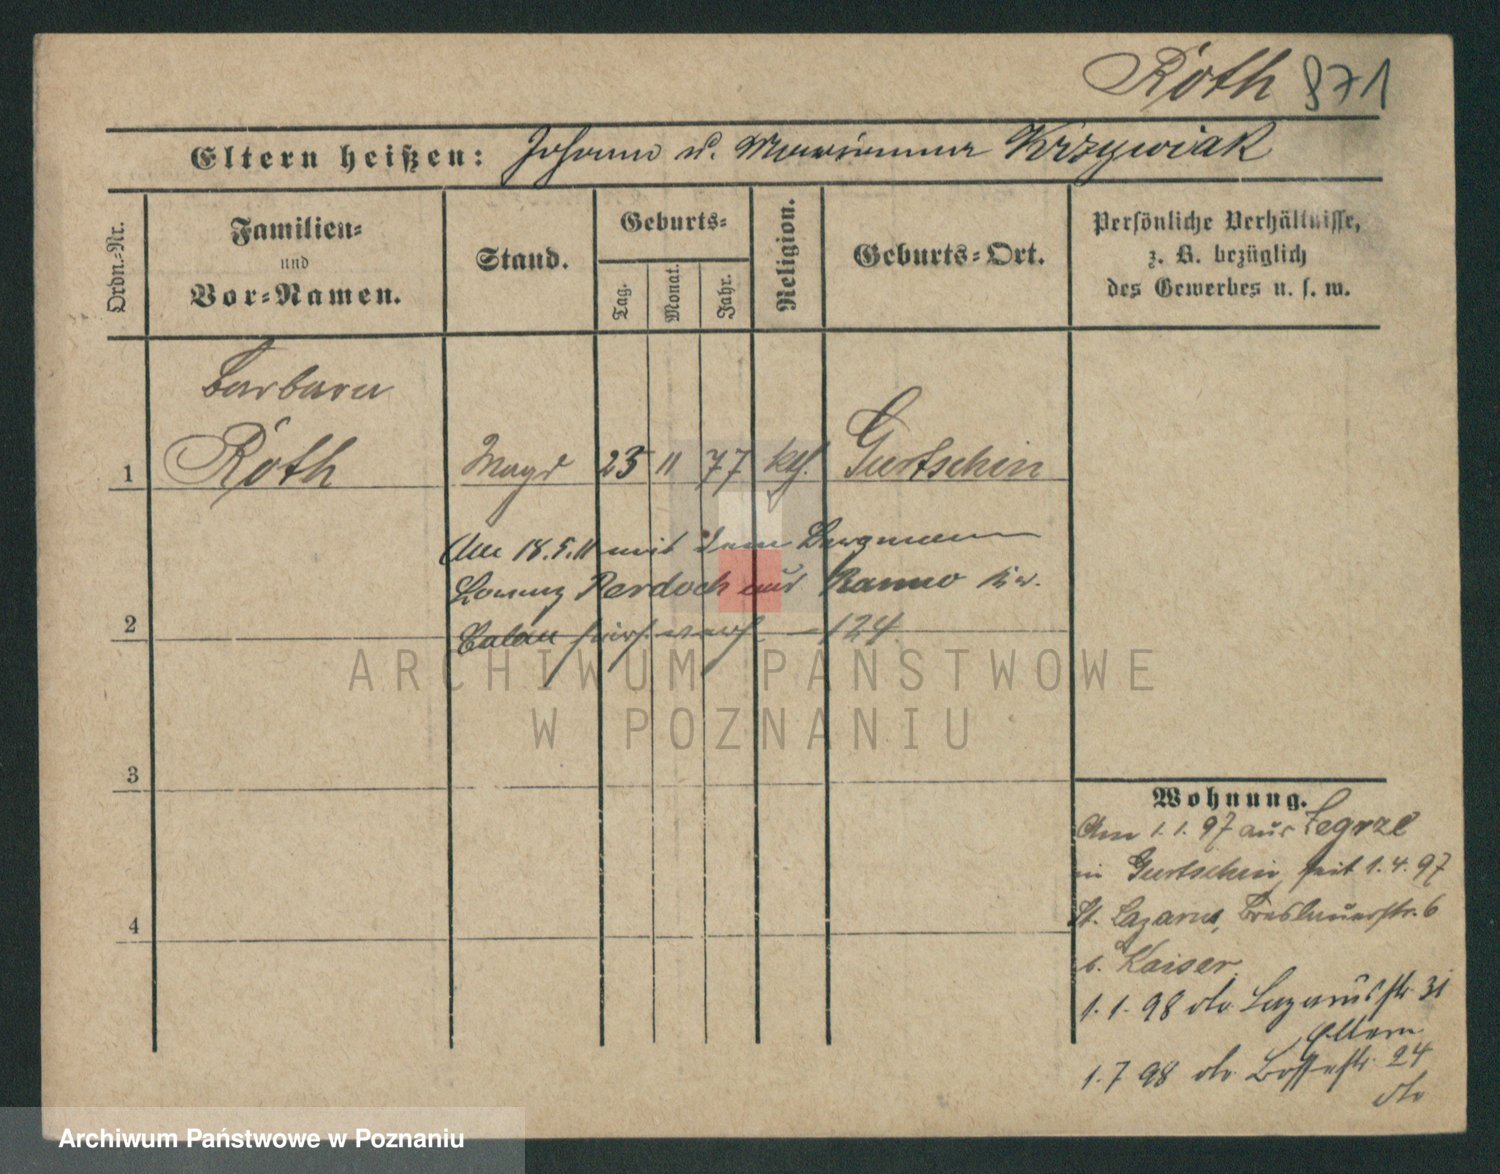 Roth 871
Eltern heißen: Johann u. Marianna Krzywiak
Ordn.-Nr.
Familien-
und
Vor-Namen.
Stand.
Geburts-
Tag.
Monat.
Jahr.
Religion.
Geburts-Ort.
Persönliche Verhältnisse,
z. B. bezüglich
des Gewerbes u. s. w.
Barbara
1 Roth Magd 23 11 77 kth. Gurtschin
Am 18.5.11 mit dem Bergmann
Lorenz Perdoch aus Ranno Kr.
2 Calau verh. 124
3
4
Wohnung.
Am 1.1.97 aus Zegrze
in Gurtschin, seit 1.4.97
St. Lazarus, Breslauerstr. 6
b. Kaiser.
1.1.98 do Lazarusstr 31
Eltern
1.7 98 do 24
do
ARCHIWUM PAŃSTWOWE
W POZNANIU
Archiwum Państwowe w Poznaniu